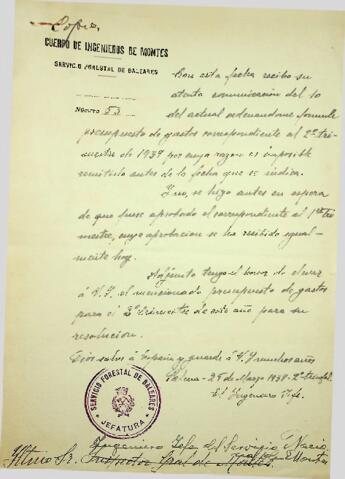 Copia.
CUERPO DE INGENIEROS DE MONTES
SERVICIO FORESTAL DE BALEARES
NÚMERO 53
Con esta fecha recibo su
atenta comunicación del 10
del actual ordenandome formule
presupuesto de gastos correspondiente al 2º tri-
mestre de 1939 por cuya razon es imposible
remitirlo antes de la fecha que se indica.
no, se hizo antes en espera
de que fuese aprobado el correspondiente al 1er tri
mestre, cuya aprobacion se ha recibido igual-
mente hoy.
Adjunto tengo el honor de elevar
á V. I. el mencionado presupuesto de gastos
para el 2º trimestre de este año para su
resolucion.
Dios salve á España y guarde á V. I. muchos años
Palma, 29 de Marzo 1939.
El Ingeniero Jefe.
SERVICIO FORESTAL DE BALEARES
JEFATURA
Ingeniero Jefe del Servicio Nacio
Iltmo Sr. Inspector Gral de Montes